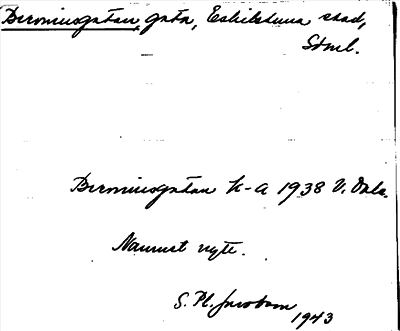 Bromiusgatan, gata, Eskilstuna stad,
Södml.
Bromiusgatan k-a 1938 V. Dala.
Namnet nytt.
S. Pl. Jacobson
1943